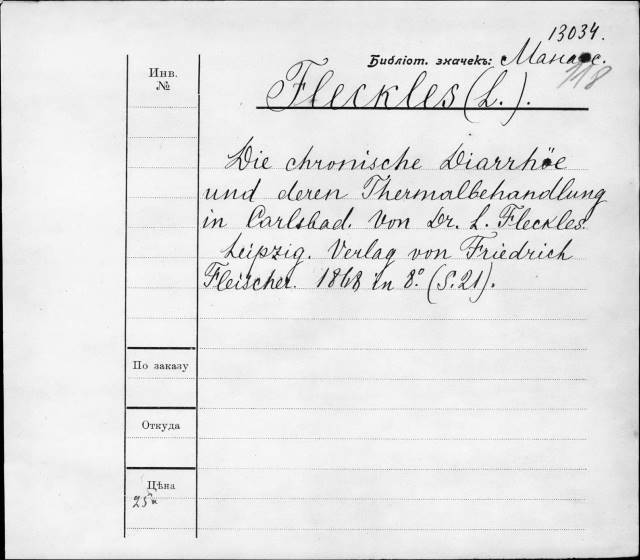 13034.
Библіот. значекъ: Манасс.
118
Инв.
№
Fleckles (L.).
Die chronische Diarrhöe
und deren Thermalbehandlung
in Carlsbad. Von Dr. L. Fleckles.
Leipzig. Verlag von Friedrich
Fleischer. 1868 in 8º. (S. 21).
По заказу
Откуда
Цѣна
25к